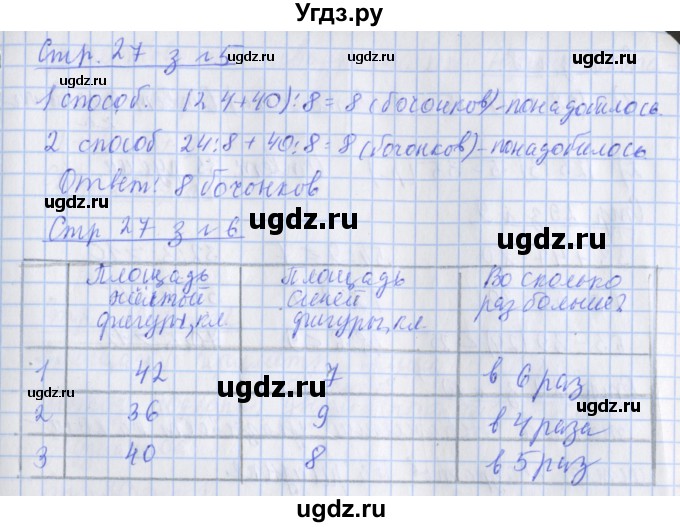 Угдз.ру
Стр. 27 з №5
1 способ. (24+40):8=8 (бочонков)-понадобилось.
2 способ 24:8+40:8=8 (бочонков)-понадобилось
Ответ: 8 бочонков
Стр 27 з №6
Площадь жёлтой фигуры, кл. Площадь синей фигуры, кл. Во сколько раз больше?
1 42 7 в 6 раз
2 36 9 в 4 раза
3 40 8 в 5 раз
ugdz.ru
ugdz.ru
ugdz.ru
ugdz.ru
ugdz.ru
ugdz.ru
ugdz.ru
ugdz.ru
ugdz.ru
ugdz.ru
ugdz.ru
ugdz.ru
ugdz.ru
ugdz.ru